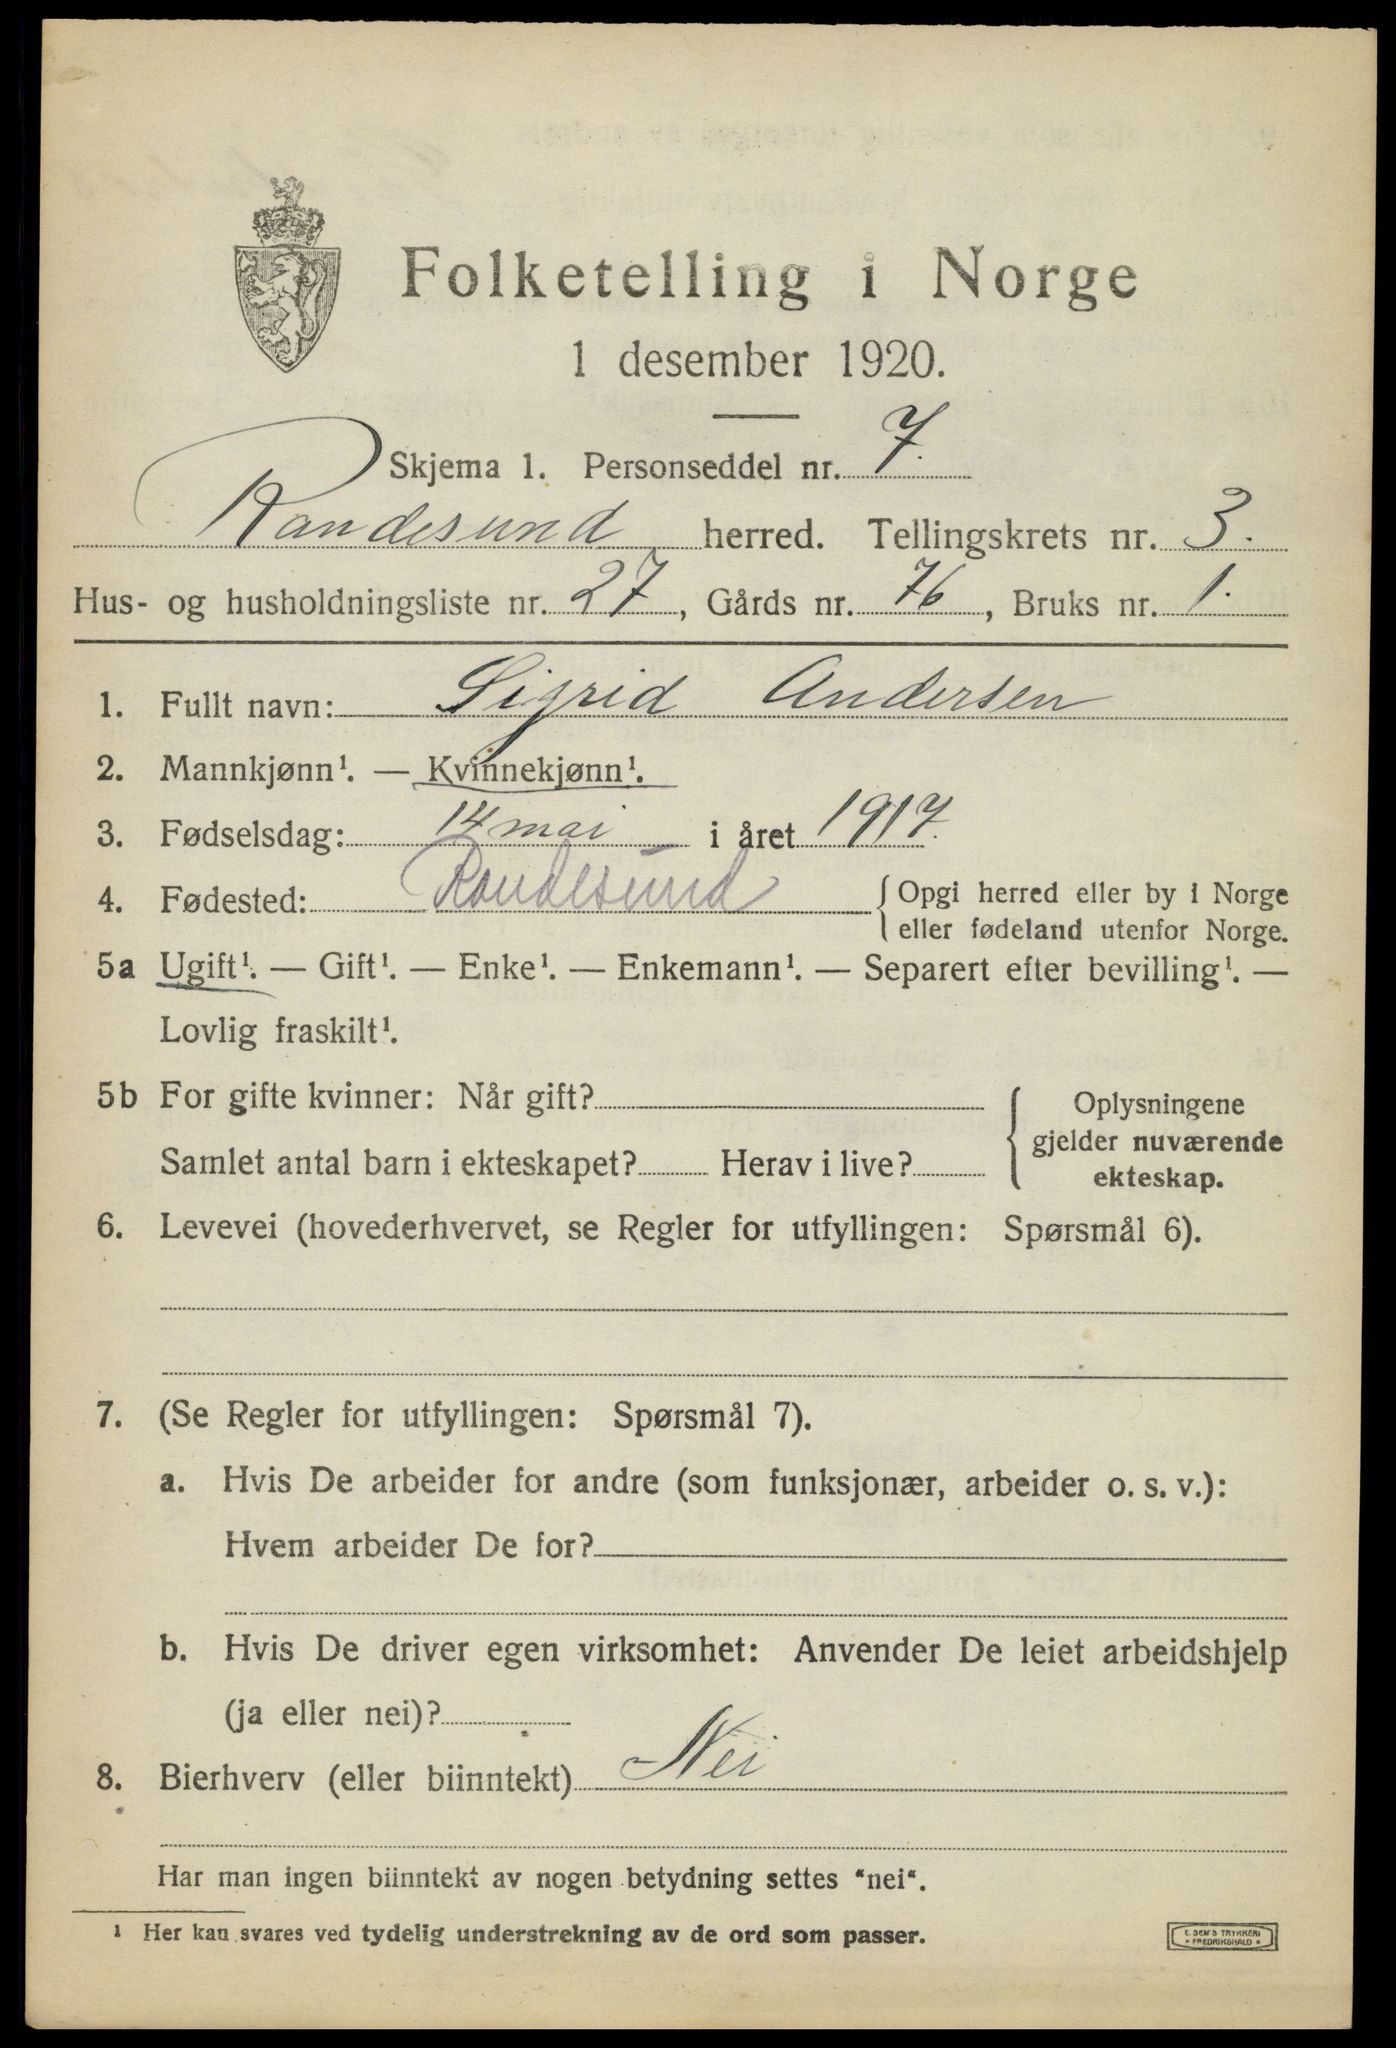 Folketelling i Norge
1 desember 1920.
Skjema 1. Personseddel nr. 7.
Randesund herred. Tellingskrets nr. 3.
Hus- og husholdningsliste nr. 27, Gårds nr. 76, Bruks nr. 1.
1. Fullt navn: Sigrid Andersen
2. Mannkjønn¹. — Kvinnekjønn¹.
3. Fødselsdag: 14 mai i året 1917.
4. Fødested: Randesund { Opgi herred eller by i Norge
eller fødeland utenfor Norge.
5a Ugift¹. — Gift¹. — Enke¹. — Enkemann¹. — Separert efter bevilling¹. —
Lovlig fraskilt¹.
5b For gifte kvinner: Når gift? { Oplysningene
gjelder nuværende
Samlet antal barn i ekteskapet? Herav i live? ekteskap.
6. Levevei (hovederhvervet, se Regler for utfyllingen: Spørsmål 6).
7. (Se Regler for utfyllingen: Spørsmål 7).
a. Hvis De arbeider for andre (som funksjonær, arbeider o. s. v.):
Hvem arbeider De for?
b. Hvis De driver egen virksomhet: Anvender De leiet arbeidshjelp
(ja eller nei)?
8. Bierhverv (eller biinntekt) Nei
Har man ingen biinntekt av nogen betydning settes "nei".
¹ Her kan svares ved tydelig understrekning av de ord som passer.
E. SEM'S TRYKKERI
* FREDRIKSHALD *